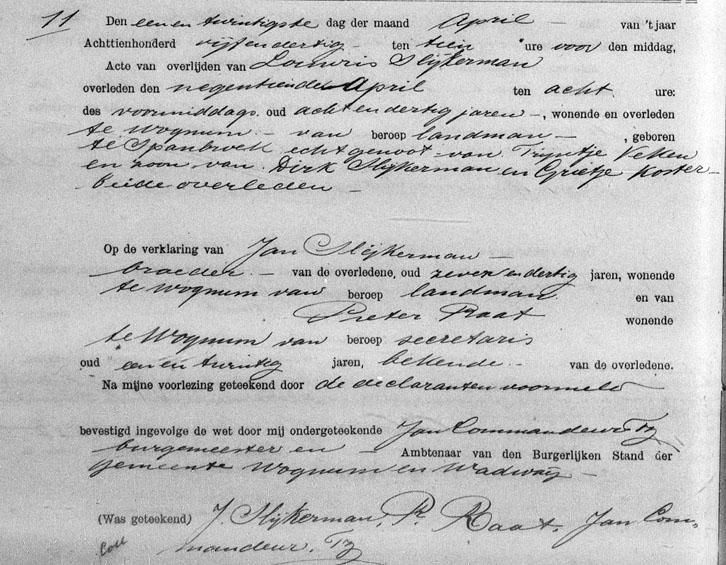 11
Den een en twintigste dag der maand April - van 't jaar
Achttienhonderd vijf en dertig - ten tien ure voor den middag,
Acte van overlijden van Louwris Slijkerman
overleden den negentienden April ten acht ure:
des voormiddags. oud acht en dertig jaren -, wonende en overleden
te Wognum - van beroep landman - , geboren
te Spanbroek echtgenoot van Trijntje Veken
en zoon van Dirk Slijkerman en Grietje Koster
beide overleden -
Op de verklaring van Jan Slijkerman -
broeder - van de overledene, oud zeven en dertig jaren, wonende
te Wognum van beroep landman en van
Pieter Raat wonende
te Wognum van beroep secretaris
oud een en twintig jaren, bekende - van de overledene.
Na mijne voorlezing geteekend door de declaranten voormeld
bevestigd ingevolge de wet door mij ondergeteekende Jan Commandeur Tz
burgemeester en - Ambtenaar van den Burgerlijken Stand der
gemeente Wognum en Wadway -
(Was geteekend) J. Slijkerman, P. Raat. Jan Com-
mandeur. Tz